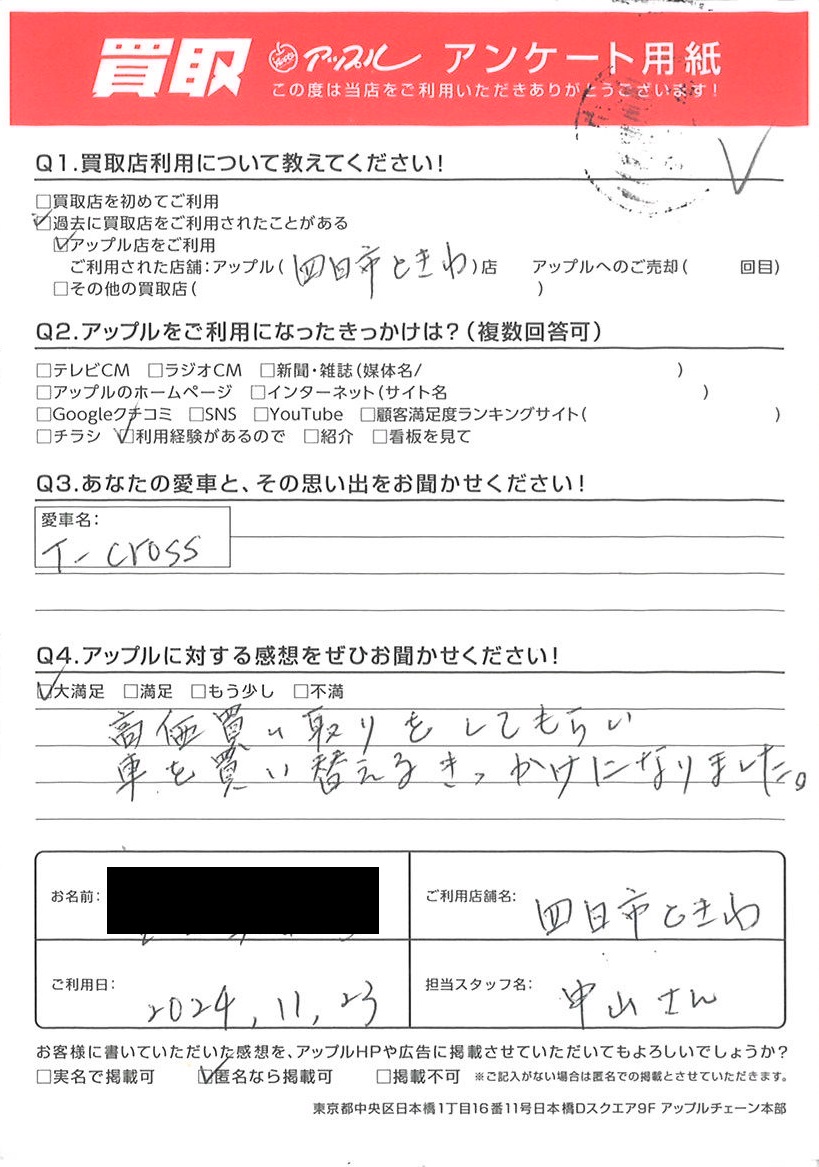 買取 アップル アンケート用紙
この度は当店をご利用いただきありがとうございます！
Q1.買取店利用について教えてください！
□買取店を初めてご利用
☑過去に買取店をご利用されたことがある
☑アップル店をご利用
ご利用された店舗：アップル（四日市ときわ）店 アップルへのご売却（ 回目）
□その他の買取店（ ）
Q2.アップルをご利用になったきっかけは？（複数回答可）
□テレビCM □ラジオCM □新聞・雑誌（媒体名/ ）
□アップルのホームページ □インターネット（サイト名 ）
□Googleクチコミ □SNS □YouTube □顧客満足度ランキングサイト（ ）
□チラシ ☑利用経験があるので □紹介 □看板を見て
Q3.あなたの愛車と、その思い出をお聞かせください！
愛車名：
T-cross
Q4.アップルに対する感想をぜひお聞かせください！
☑大満足 □満足 □もう少し □不満
高価買い取りをしてもらい
車を買い替えるきっかけになりました。
お名前：
ご利用店舗名： 四日市ときわ
ご利用日： 2024,11,23
担当スタッフ名： 中山さん
お客様に書いていただいた感想を、アップルHPや広告に掲載させていただいてもよろしいでしょうか？
□実名で掲載可 ☑匿名なら掲載可 □掲載不可 ※ご記入がない場合は匿名での掲載とさせていただきます。
東京都中央区日本橋1丁目16番11号日本橋Dスクエア9F アップルチェーン本部